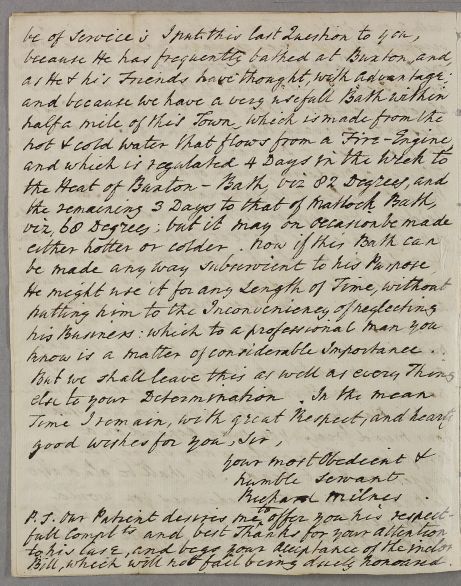 be of Service; I put this last Question to you,
because He has frequently bathed at Buxton, and,
as He & his Friends have thought, with advantage:
and because we have a very usefull Bath within
half a mile of this Town, which is made from the
hot & cold water that flows from a Fire-Engine,
and which is regulated 4 Days in the Week to
the Heat of Buxton-Bath, viz 82 Degrees, and
the remaining 3 Days to that of Matlock Bath,
viz, 68 Degrees; but it may on Occasion be made
either hotter or colder. Now if this Bath can
be made any way subservient to his Purpose
He might use it for any Length of Time, without
putting him to the Inconveniency of neglecting
his Business: which to a professional man you
know is a matter of considerable Importance.
But we shall leave this as well as every Thing
else to your Determination. In the mean
Time I remain, with great Respect, and hearty
good wishes for you, Sir,
your most Obedient &
humble Servant
Richard Milnes.
P.S. Our Patient desires me to offer you his respect-
full Complts and best Thanks for your attention
to his Case, and begs your acceptance of the
Bill, which will not fail being duely honoured.